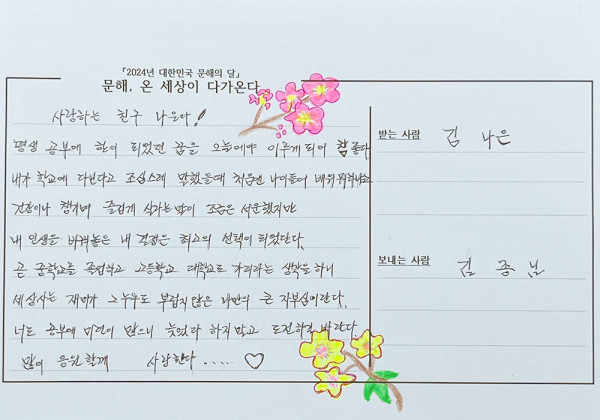 「2024년 대한민국 문해의 달」
문해, 온 세상이 다가온다
사랑하는 친구 나은아!
평생 공부에 한이 되었던 꿈을 오늘에야 이루게 되어 참 좋다
내가 학교에 다닌다고 조심스레 말했을때 처음엔 나이들어 배워 뭐하냐고
건강이나 챙기며 즐겁게 살자는 말이 조금은 서운했지만
내 인생을 바꿔놓은 내 결정은 최고의 선택이 되었단다.
곧 중학교를 졸업하고 고등학교 대학교도 가리라는 생각을 하니
세상사는 재미가 그 누구도 부럽지 않은 나만의 큰 자부심이란다.
너도 공부에 미련이 많으니 늦었다 하지말고 도전하길 바란다.
많이 응원할게 사랑한다..... ♡
받는 사람 김 나은
보내는 사람 김 종님